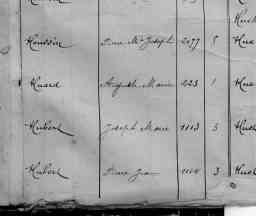 Houssin Pierre Me Joseph 2077 5 Hue
Huard Auguste Marie 223 1 Hua
Hubert Joseph Marie 1113 5 Hue
Hubert Pierre Jean 1114 3 Hue